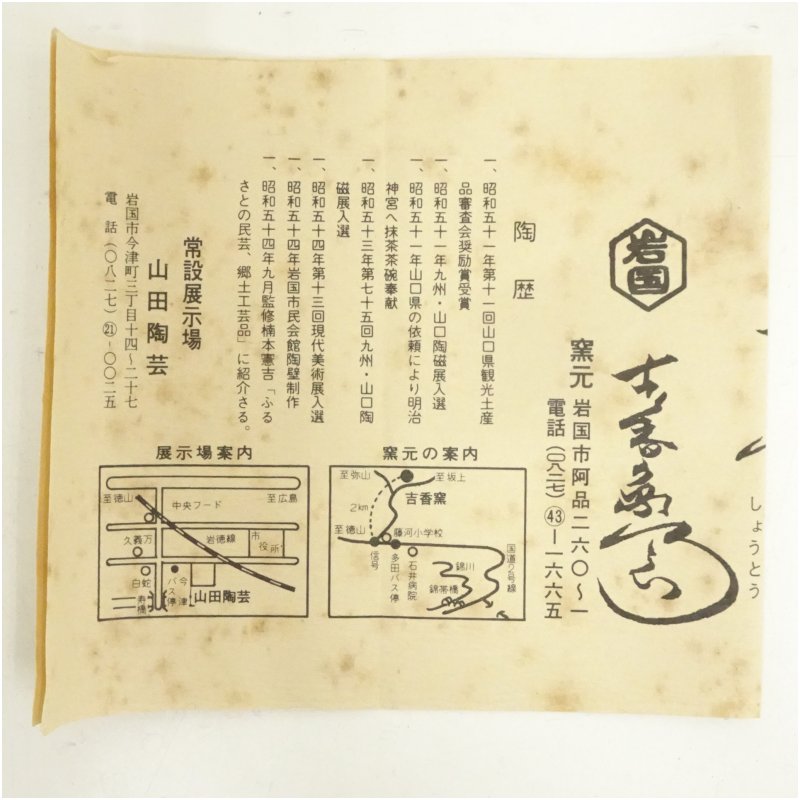 しょうとう
岩国
吉香窯
窯元 岩国市阿品二六〇〜一
電話(〇八二七)㊸ー一六六五
陶歴
一、昭和五十一年第十一回山口県観光土産
品審査会奨励賞受賞
一、昭和五十一年九州・山口陶磁展入選
一、昭和五十一年山口県の依頼により明治
神宮へ抹茶茶碗奉献
一、昭和五十三年第七十五回九州・山口陶
磁展入選
一、昭和五十四年第十三回現代美術展入選
一、昭和五十四年岩国市民会館陶壁制作
一、昭和五十四年九月監修楠本憲吉「ふる
さとの民芸、郷土工芸品」に紹介さる。
常設展示場
山田陶芸
岩国市今津町三丁目十四〜二十七
電話(〇八二七)㉑-〇〇二五
窯元の案内
至弥山
至坂上
吉香窯
2km
至徳山
藤河小学校
信号
多田バス停
石井病院
国道2号線
錦川
錦帯橋
展示場案内
至徳山
中央フード
至広島
久義万
岩徳線
市役所
白蛇
バス停
今津
山田陶芸
寿橋